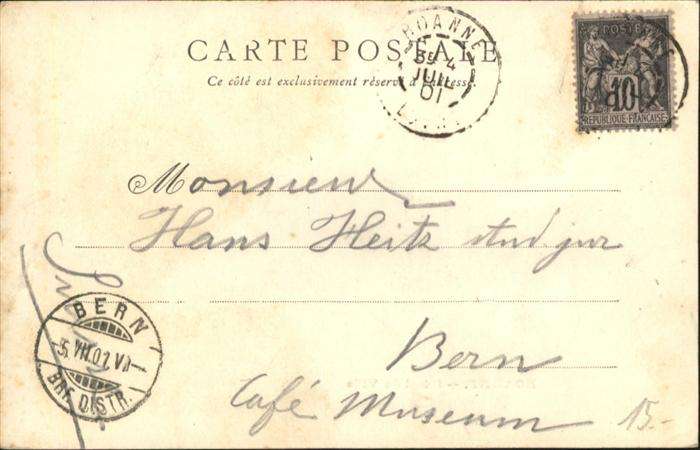 CARTE POSTALE
Ce côté est exclusivement réservé à l'adresse
ROANNE
4
JUIL
01
LOIRE
POSTES
10
REPUBLIQUE FRANÇAISE
Monsieur
Hans Heitz stud jur
Bern
Café Museum
15.-
BERN
5.VII.01.VI
BRF. DISTR.